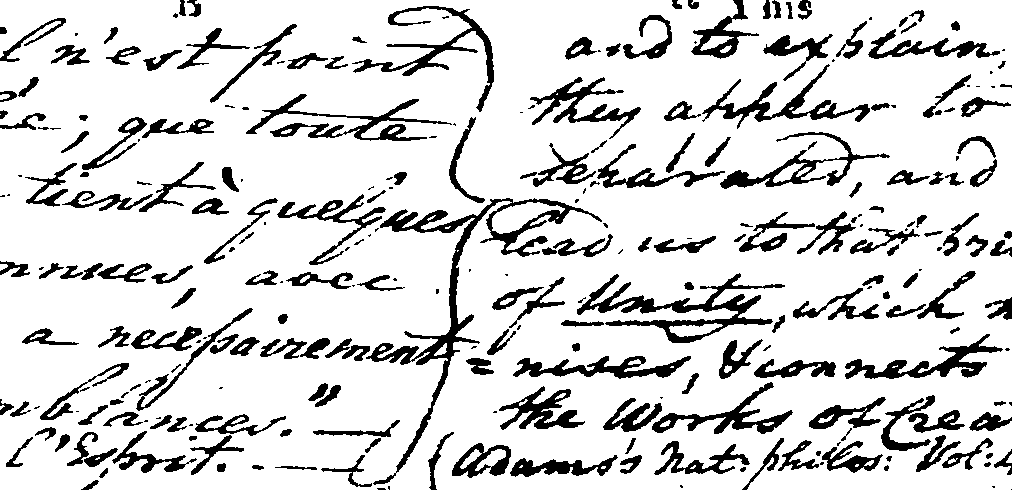 n'est point
; que toute
tient à quelques
, avec
a necessairement
L'Esprit.
and to explain,
they appear to
separated, and
lead us to that
of Unity, which
= nises, & connects
the Works of
Adams's Nat: philos: Vol: